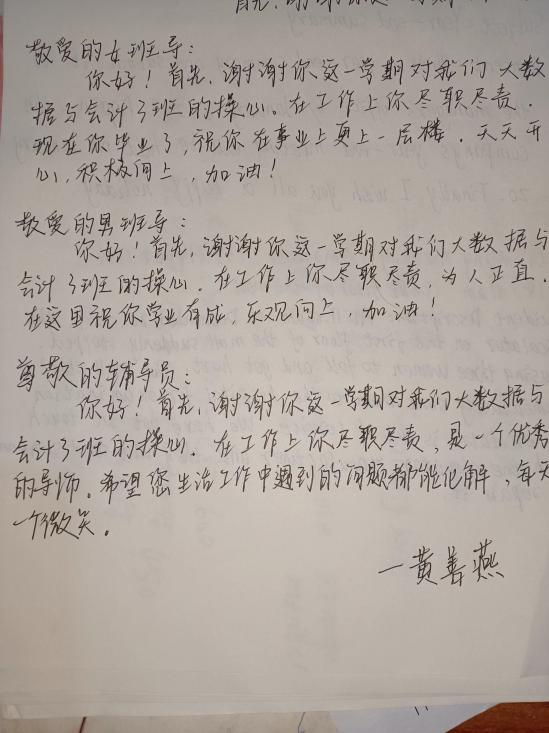 敬爱的女班导：
你好！首先，谢谢你这一学期对我们大数
据与会计3班的操心。在工作上你尽职尽责，
现在你毕业了，祝你在事业上更上一层楼，天天开
心，积极向上，加油！
敬爱的男班导：
你好！首先，谢谢你这一学期对我们大数据与
会计3班的操心。在工作上你尽职尽责，为人正直。
在这里祝你学业有成，乐观向上，加油！
尊敬的辅导员：
你好！首先，谢谢你这一学期对我们大数据与
会计3班的操心。在工作上你尽职尽责，是一个优秀
的导师。希望您生活工作中遇到的问题都能化解，每天
一个微笑。
一黄善燕